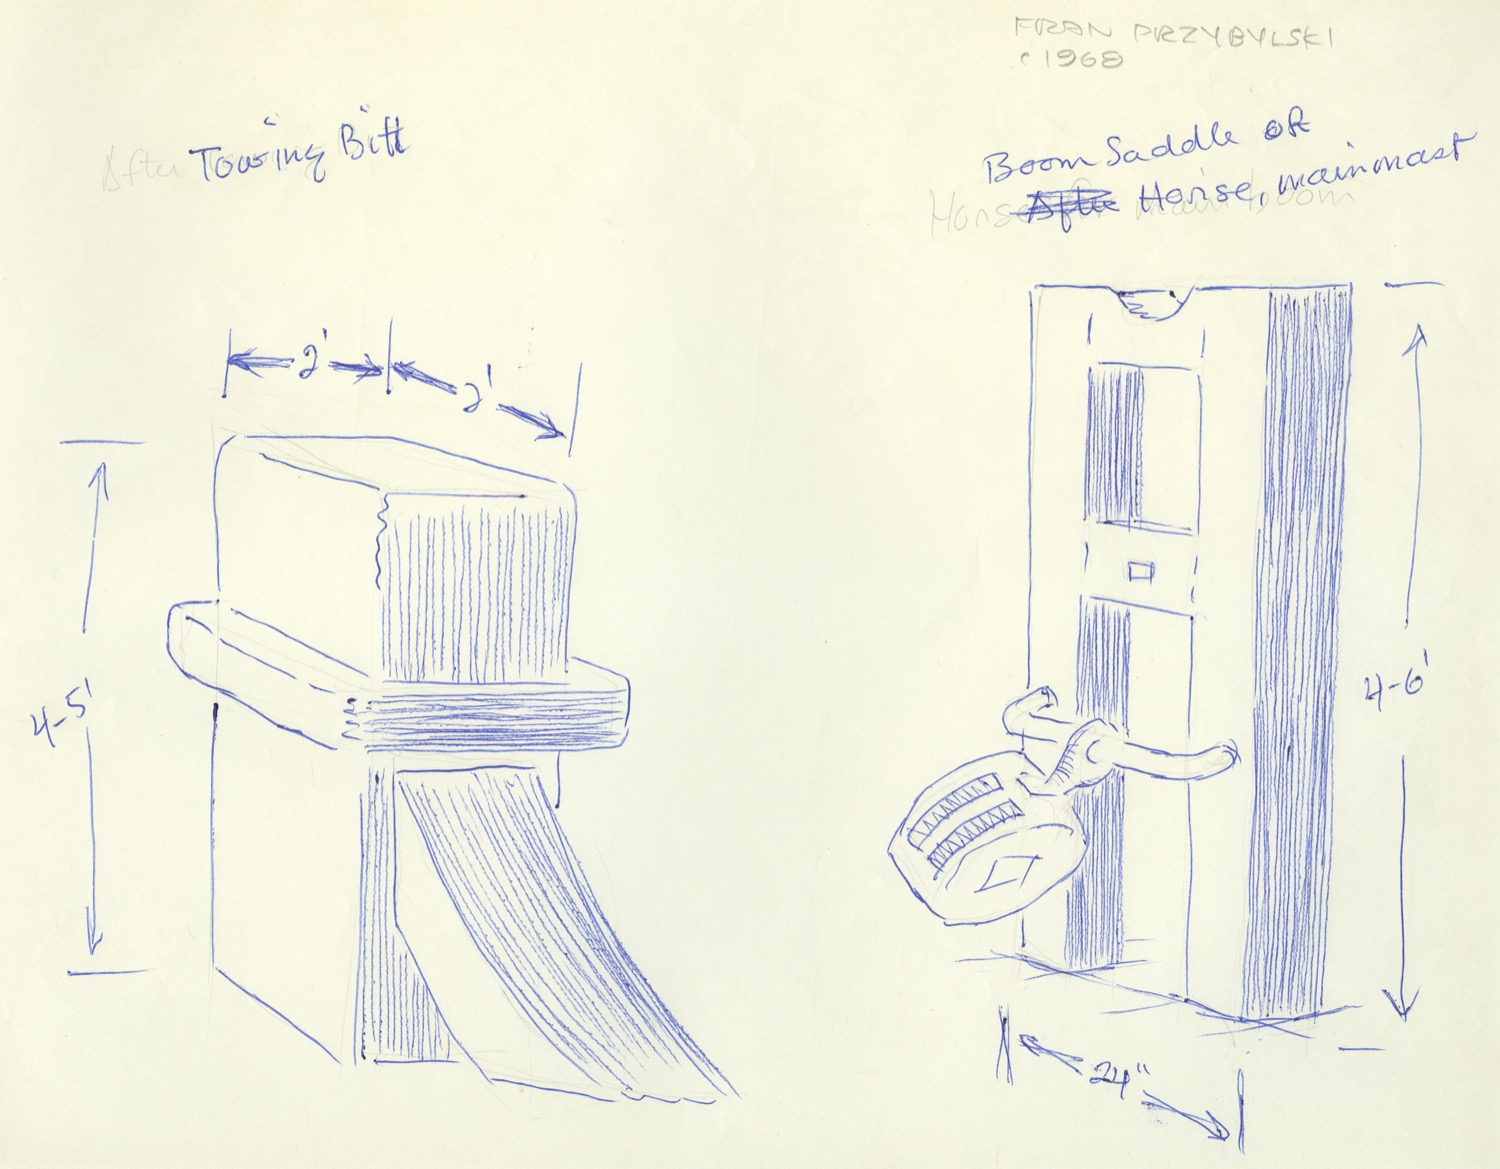 FRAN PRZYBYLSKI
c 1968
After Towing Bitt
Boom Saddle or
After Horse, mainmast
Horse for main boom
2'
2'
4-5'
4-6'
24"